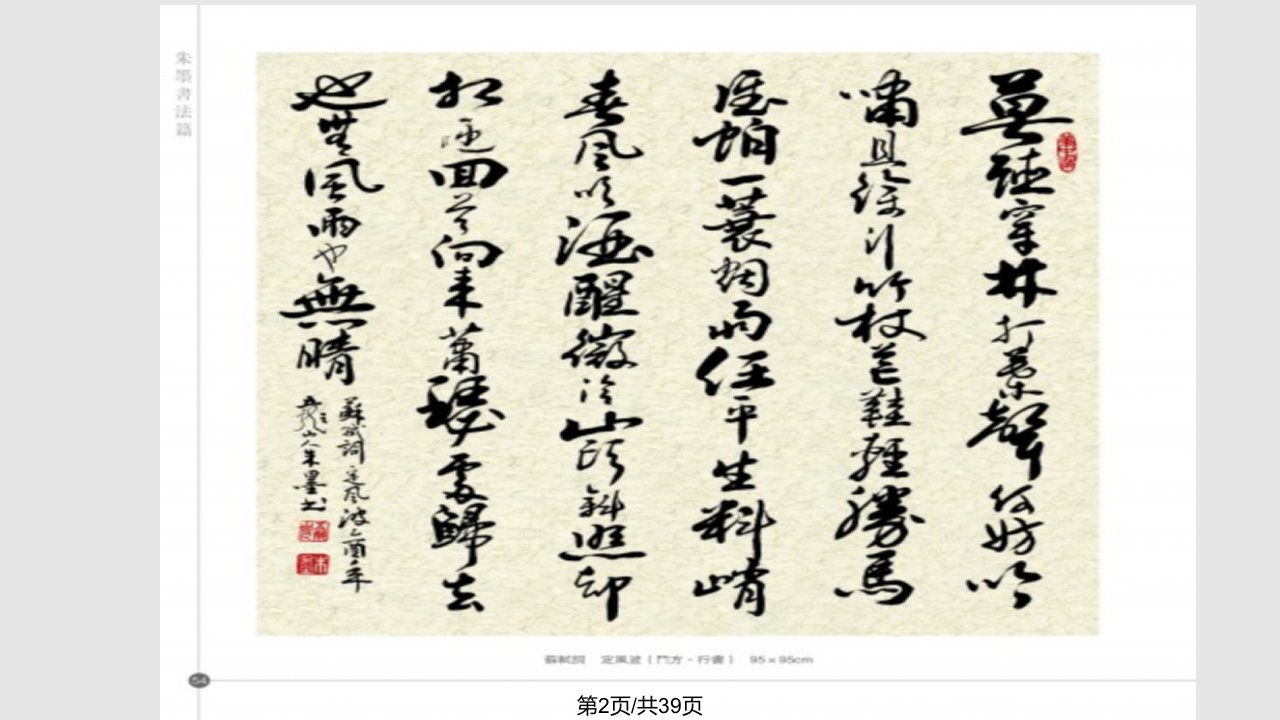 朱墨書法篇
莫聽穿林打葉聲何妨吟
嘯且徐行竹杖芒鞋輕勝馬
誰怕一蓑烟雨任平生料峭
春風吹酒醒微冷山頭斜照却
相迎回首向來蕭瑟處歸去
也無風雨也無晴
蘇軾詞定風波乙酉年
山人朱墨书
蘇軾詞 定風波（鬥方·行書） 95×95cm
54
第2页/共39页